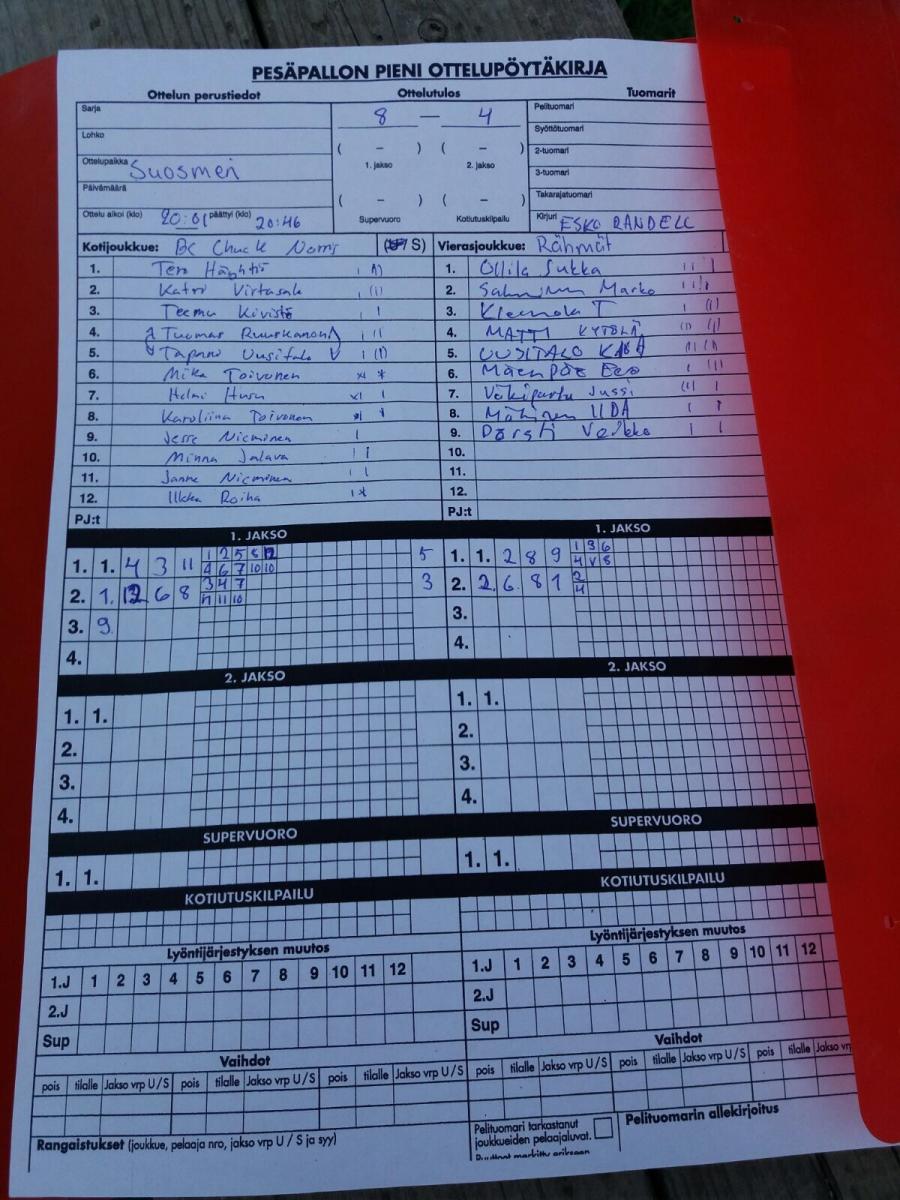 PESÄPALLON PIENI OTTELUPÖYTÄKIRJA
Ottelun perustiedot
Sarja
Lohko
Ottelupaikka Suosmeri
Päivämäärä
Ottelu alkoi (klo) 20:01 päättyi (klo) 20:46
Ottelutulos
8 — 4
( – ) ( – )
1. jakso 2. jakso
( – ) ( – )
Supervuoro Kotiutuskilpailu
Tuomarit
Pelituomari
Syöttötuomari
2-tuomari
3-tuomari
Takarajatuomari
Kirjuri ESKO RANDELL
Kotijoukkue: BC Chuck Norris S)
1. Tero
2. Katri Virtasalo
3. Teemu Kivistö
4. Tuomas Ruuskanen
5. Tapani Uusitalo
6. Mika Toivonen
7. Helmi
8. Karoliina Toivonen
9. Jesse Nieminen
10. Minna Jalava
11. Janne Nieminen
12. Ilkka Roiha
PJ:t
Vierasjoukkue: Rähmät
1. Ollila Jukka
2. Salminen Marko
3. Klemola T
4. MATTI KYTÖLÄ
5. UUSITALO
6. Mäenpää Eero
7. Jussi
8. IIDA
9. Veikko
10.
11.
12.
PJ:t
1. JAKSO
1. 1. 4 3 11 5
2. 1. 12 6 8 3
3. 9
4.
2. JAKSO
1. 1.
2.
3.
4.
SUPERVUORO
1. 1.
KOTIUTUSKILPAILU
Lyöntijärjestyksen muutos
1.J 1 2 3 4 5 6 7 8 9 10 11 12
2.J
Sup
Vaihdot
pois tilalle Jakso vrp U / S pois tilalle Jakso vrp U / S pois tilalle Jakso vrp U / S
Rangaistukset (joukkue, pelaaja nro, jakso vrp U / S ja syy)
1. JAKSO
1. 1. 2 8 9 1 3 6
2. 2. 6. 8 1 2
3.
4.
2. JAKSO
1. 1.
2.
3.
4.
SUPERVUORO
1. 1.
KOTIUTUSKILPAILU
Lyöntijärjestyksen muutos
1.J 1 2 3 4 5 6 7 8 9 10 11 12
2.J
Sup
Vaihdot
pois tilalle Jakso vrp U / S pois tilalle Jakso vrp U / S pois tilalle Jakso vrp
Pelituomari tarkastanut
joukkueiden pelaajaluvat.
Pelituomarin allekirjoitus